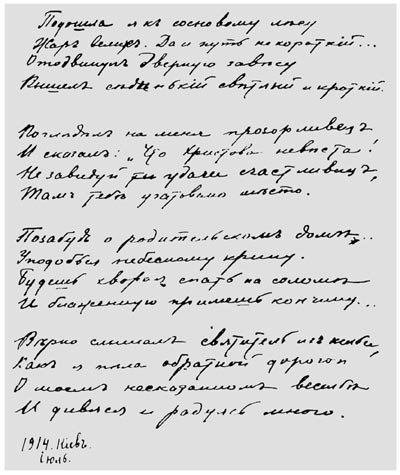 Подошла я къ сосновому лѣсу
Жаръ великъ. Да и путь не короткій...
Отодвинулъ дверную завѣсу
Вышелъ сѣденькій свѣтлый и кроткій.
Поглядѣлъ на меня прозорливецъ
И сказалъ: „Христова невѣста!
Не завидуй ты удачѣ счастливицъ,
Тамъ тебѣ уготовано мѣсто.
Позабудь о родительскомъ домѣ...
Уподобься небесному крину.
Будешь хворая спать на соломѣ
И блаженную примешь кончину...
Вѣрно слышалъ святитель изъ кельи,
Какъ я пѣла обратной дорогой
О моемъ несказанномъ весельѣ
И дивясь и радуясь много.
1914. Кіевъ.
Іюль.